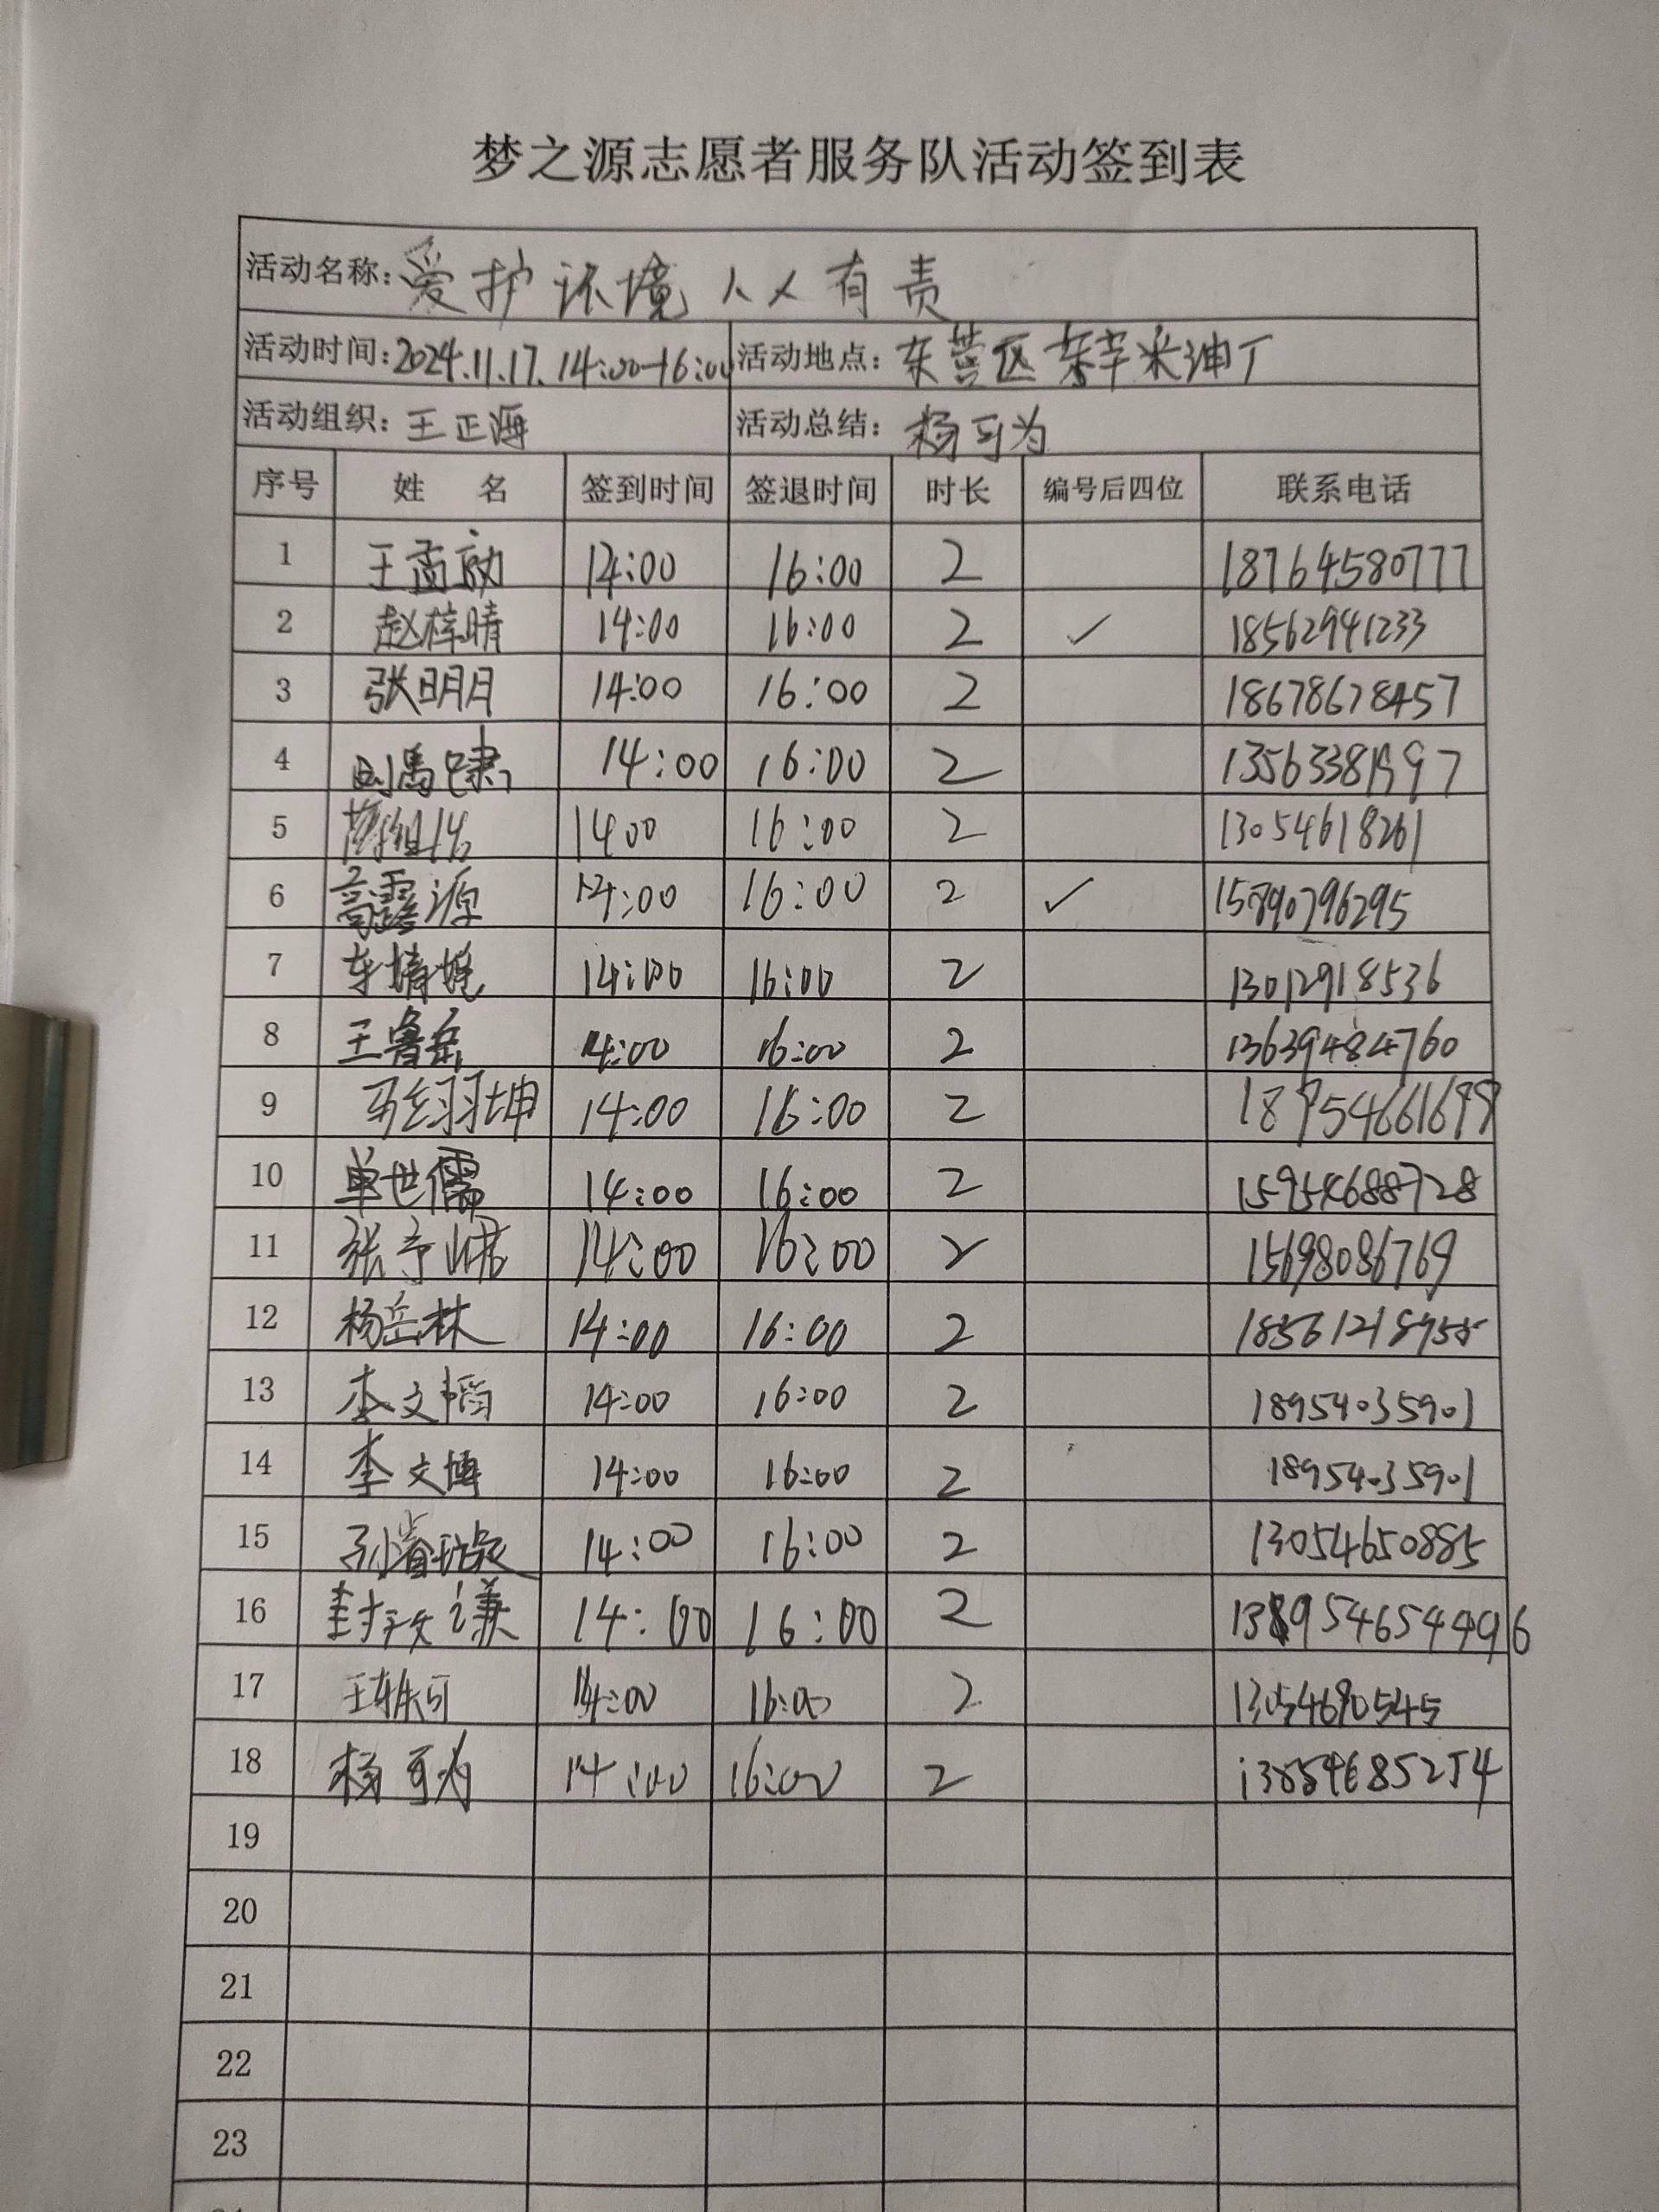 梦之源志愿者服务队活动签到表
活动名称：爱护环境人人有责
活动时间：2024.11.17. 14:00-16:00 活动地点：东营区东辛采油厂
活动组织：王正海 活动总结：杨可为
序号 姓 名 签到时间 签退时间 时长 编号后四位 联系电话
1 王孟勋 14:00 16:00 2 18764580777
2 赵梓晴 14:00 16:00 2 ✓ 18562941233
3 张明月 14:00 16:00 2 18678678457
4 14:00 16:00 2
5 1400 16:00 2 13054618261
6 高露源 14:00 16:00 2 ✓
7 车婧娓 14:00 16:00 2 13012918536
8 王鲁岳 14:00 16:00 2 13639484760
9 14:00 16:00 2
10 单世儒 14:00 16:00 2 15954688728
11 张予 14:00 16:00 2 15698086769
12 杨岳林 14:00 16:00 2
13 李文韬 14:00 16:00 2 18954035901
14 李文博 14:00 16:00 2 18954035901
15 14:00 16:00 2 13054650885
16 封 谦 14:00 16:00 2
17 14:00 16:00 2 13054690545
18 杨可为 14:00 16:00 2
19
20
21
22
23